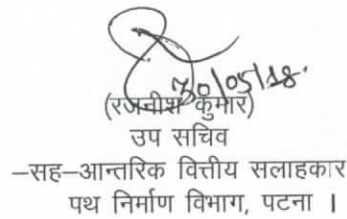 30/05/18.
(रजनीश कुमार)
उप सचिव
–सह–आन्तरिक वित्तीय सलाहकार
पथ निर्माण विभाग, पटना ।